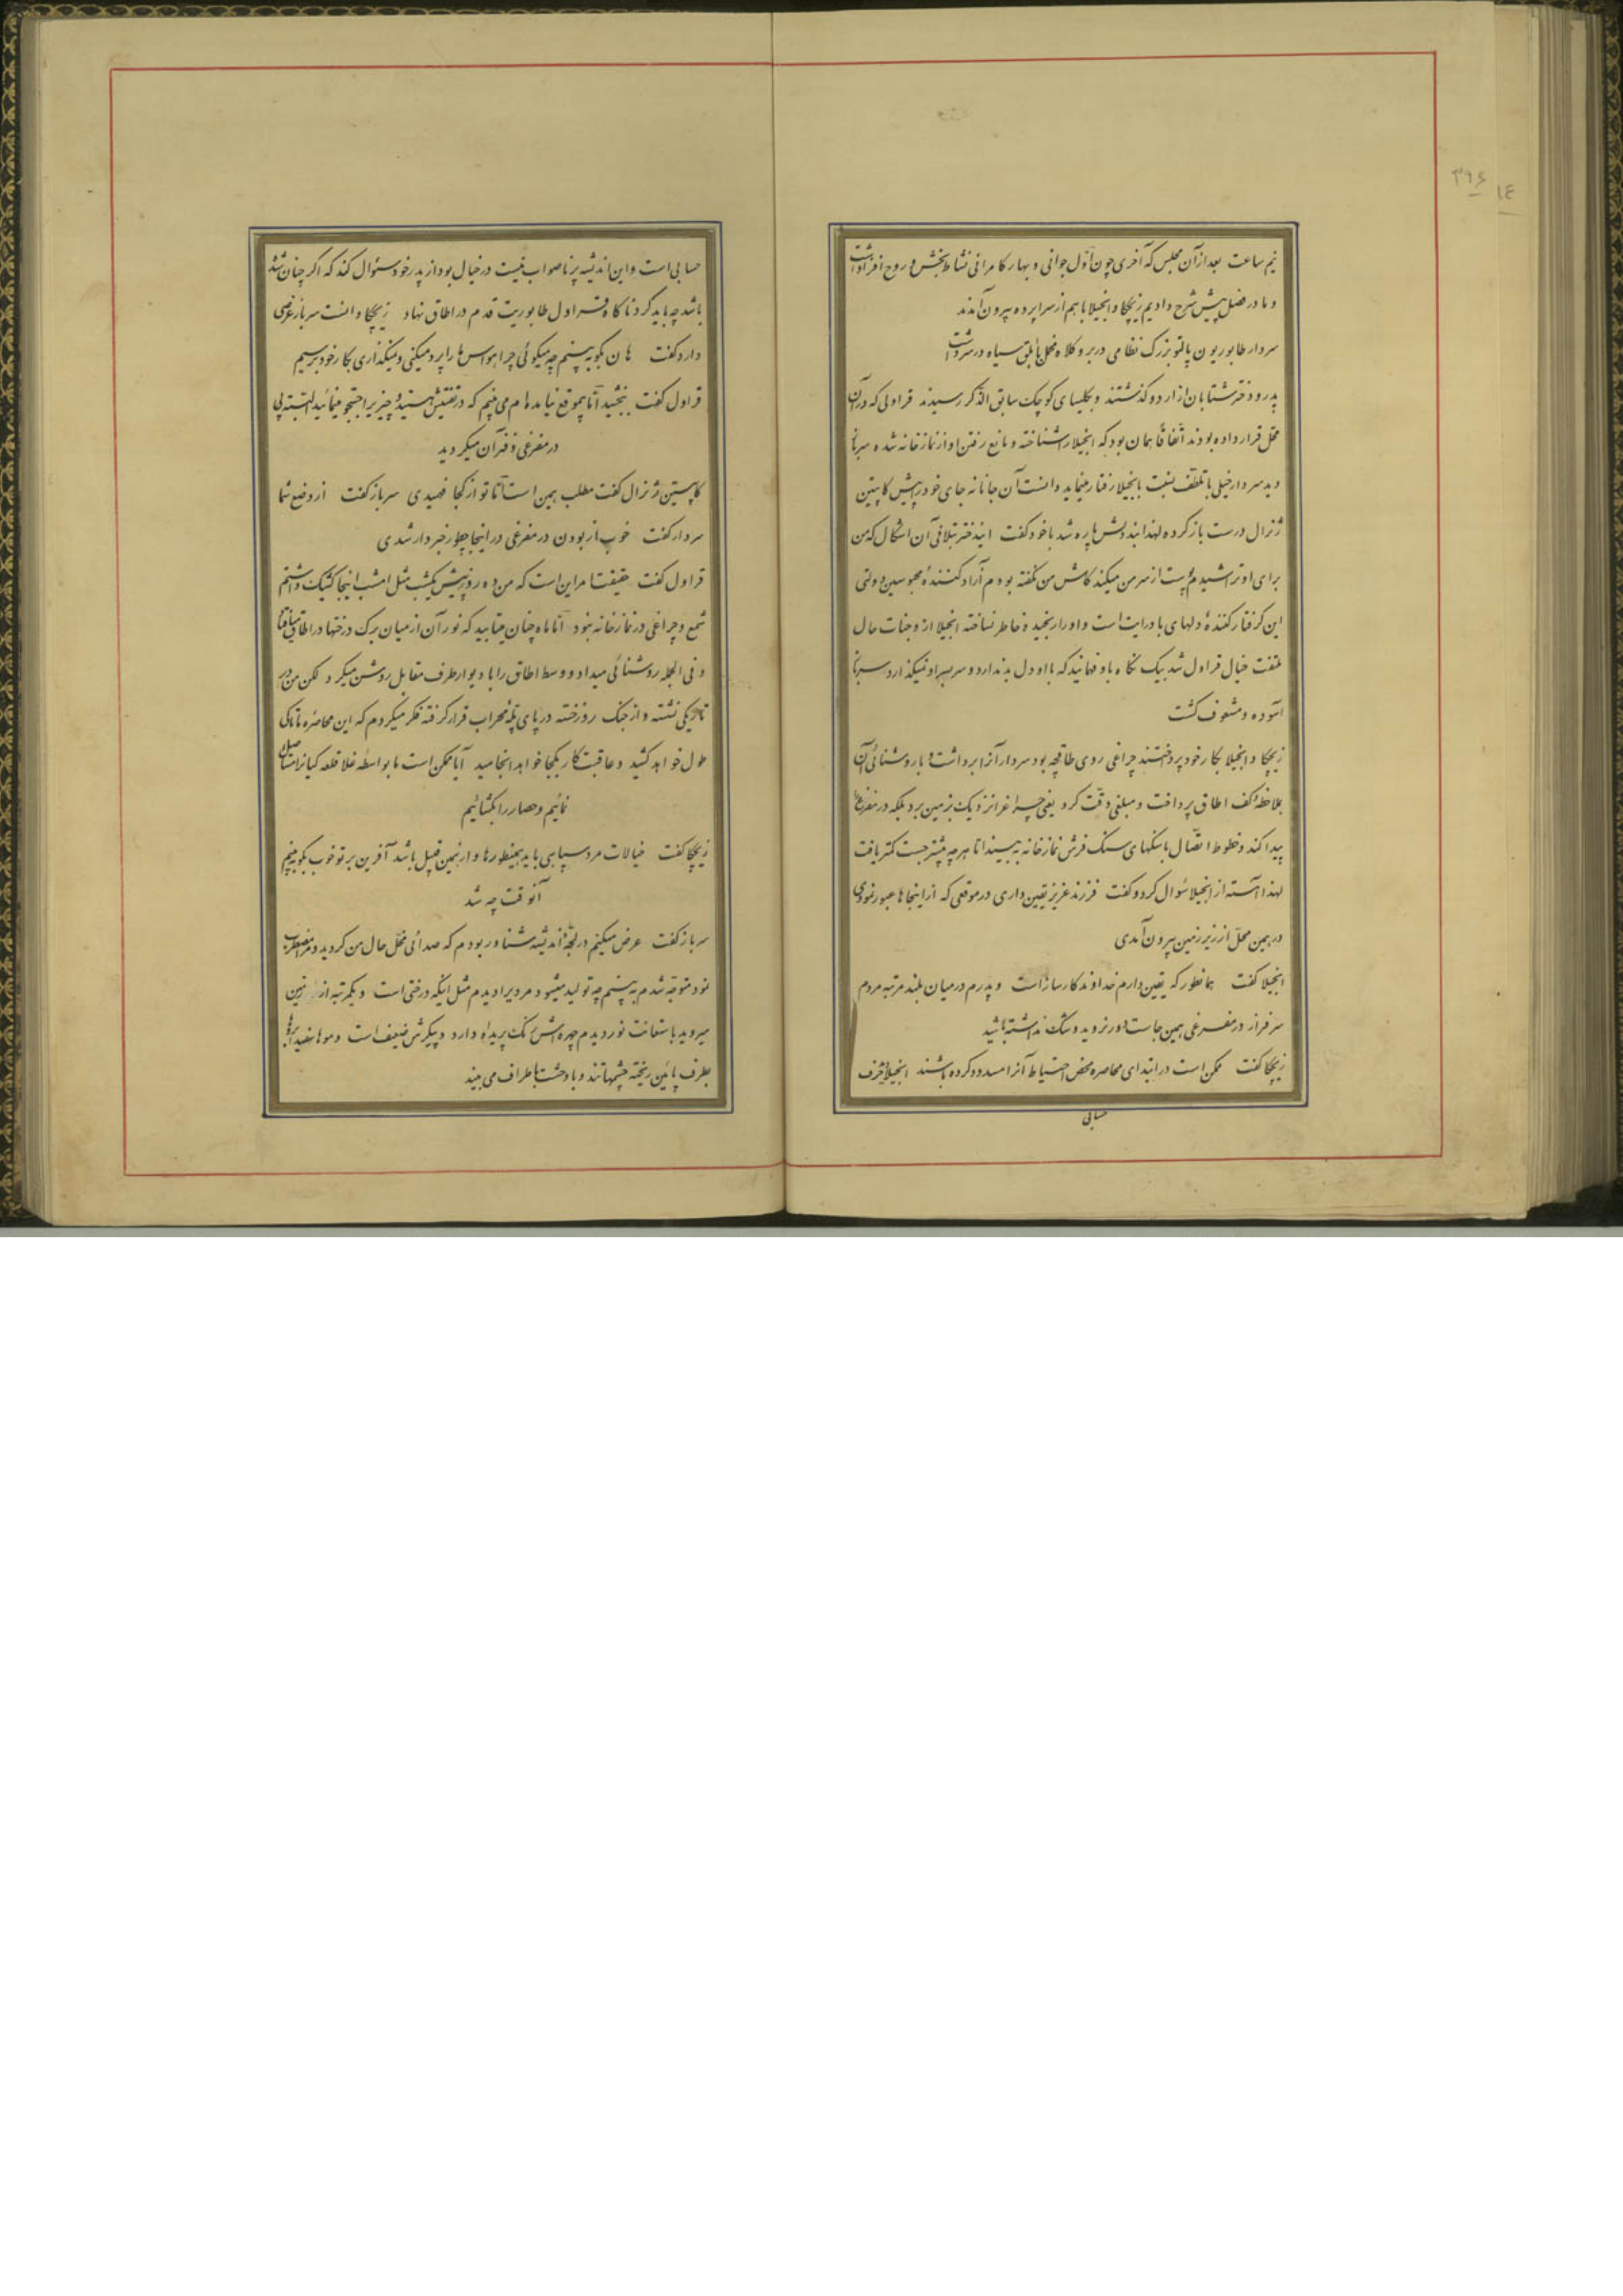 ۳۹۶
۱۴
نیم ساعت بعد از آن مجلس که آخری چون اول جوانی و بهار کامرانی نشاط بخش و روح افزا داشت
و ما در فصل پیش شرح دادیم زیچکا و انجیلا با هم از سراپرده بیرون آمدند
سردار طابوریون پالتو بزرگ نظامی در بر و کلاه مخمل با بلق سیاه در سر داشت
پدر و دختر شتابان از اردو گذشتند و بکلیسای کوچک سابق الذکر رسیدند قراولی که در آن
محل قرار داده بودند اتفاقا همان بود که انجیلا را شناخته و مانع رفتن او از نمازخانه شده سرباز
دید سردار خیلی با تلطف نسبت بانجیلا رفتار مینماید دانست آن جانانه جای خود را پیش کاپیتن
ژنرال درست باز کرده لهذا بند دلش پاره شد با خود گفت ایندختر بتلافی آن اشکال که من
برای او تراشیدم پوست از سر من میکند کاش من نگفته بودم آزاد کنندهٔ محبوسین دولتی
این گرفتار کنندهٔ دلهای با درایت است و او را رنجیده خاطر نساخته انجیلا از وجنات حال
ملتفت خیال قراول شد بیک نگاه باو فهمانید که با او دل بد ندارد و سر بسر او نمیگذارد سرباز
آسوده و مشعوف گشت
زیچکا و انجیلا بکار خود پرداختند چراغی روی طاقچه بود سردار آنرا برداشت و با روشنائی آن
بملاحظهٔ کف اطاق پرداخت و مبلغی دقت کرد یعنی چراغ را نزدیک زمین برد بلکه در مفرغی را
پیدا کند و خطوط اتصال با سنگهای سنگ فرش نمازخانه به بیند اما هر چه بیشتر جست کمتر یافت
لهذا آهسته از انجیلا سئوال کرد و گفت فرزند عزیز یقین داری در موقعی که از اینجاها عبور نمودی
در همین محل از زیر زمین بیرون آمدی
انجیلا گفت همانطور که یقین دارم خداوند کارساز است و پدرم در میان بلند مرتبه مردم
سرفراز در مفرغی همین جاست دور نروید و شک نداشته باشید
زیچکا گفت ممکن است در ابتدای محاصره محض احتیاط آنرا مسدود کرده باشند انجیلا حرف
حسابی
حسابی است و این اندیشه پر ناصواب نیست در خیال بود از پدر خود سئوال کند که اگر چنان شده
باشد چه باید کرد ناگاه قراول طابوریت قدم در اطاق نهاد زیچکا دانست سرباز عرضی
دارد گفت هان بگو ببینم چه میگوئی چرا حواس ما را پرت میکنی و نمیگذاری بکار خود برسیم
قراول گفت ببخشید اما بموقع نیامده‌ام می بینم که در تفتیش هستید و چیزیرا جستجو مینمائید البته پی
در مفرغی و فنر آن میگردید
کاپیتن ژنرال گفت مطلب همین است اما تو از کجا فهمیدی سرباز گفت از وضع شما
سردار گفت خوب از بودن در مفرغی در اینجا چطور خبردار شدی
قراول گفت حقیقت امر این است که من ده روز پیش یکشب مثل امشب اینجا کشیک داشتم
شمع و چراغی در نمازخانه نبود اما ماه چنان میتابید که نور آن از میان برک درختها در اطاق میافتاد
و فی الجمله روشنائی میداد و وسط اطاق را با دیوار طرف مقابل روشن میکرد لکن من در
تاریکی نشسته و از جنگ روز خسته در پای پلهٔ محراب قرار گرفته فکر میکردم که این محاصره تا کی
طول خواهد کشید و عاقبت کار بکجا خواهد انجامید آیا ممکن است ما بواسطه غلا قلعه کیانرا مستأصل
نمائیم و حصار را بگشائیم
زیچکا گفت خیالات مرد سپاهی باید همینطورها و از همین قبیل باشد آفرین بر تو خوب بگو ببینم
آنوقت چه شد
سرباز گفت عرض میکنم در لجهٔ اندیشه شناور بودم که صدائی مخل حال من گردید و مضطرب
نمود متوجه شدم به بینم چه تولید میشود مردیرا دیدم مثل اینکه درختی است و یکمرتبه از زمین
میروید باستعانت نور دیدم چهره‌اش رنگ پریده دارد و پیکرش ضعیف است و موها سفید ابروها
بطرف پائین ریخته چشمها تند و با وحشت باطراف می بیند